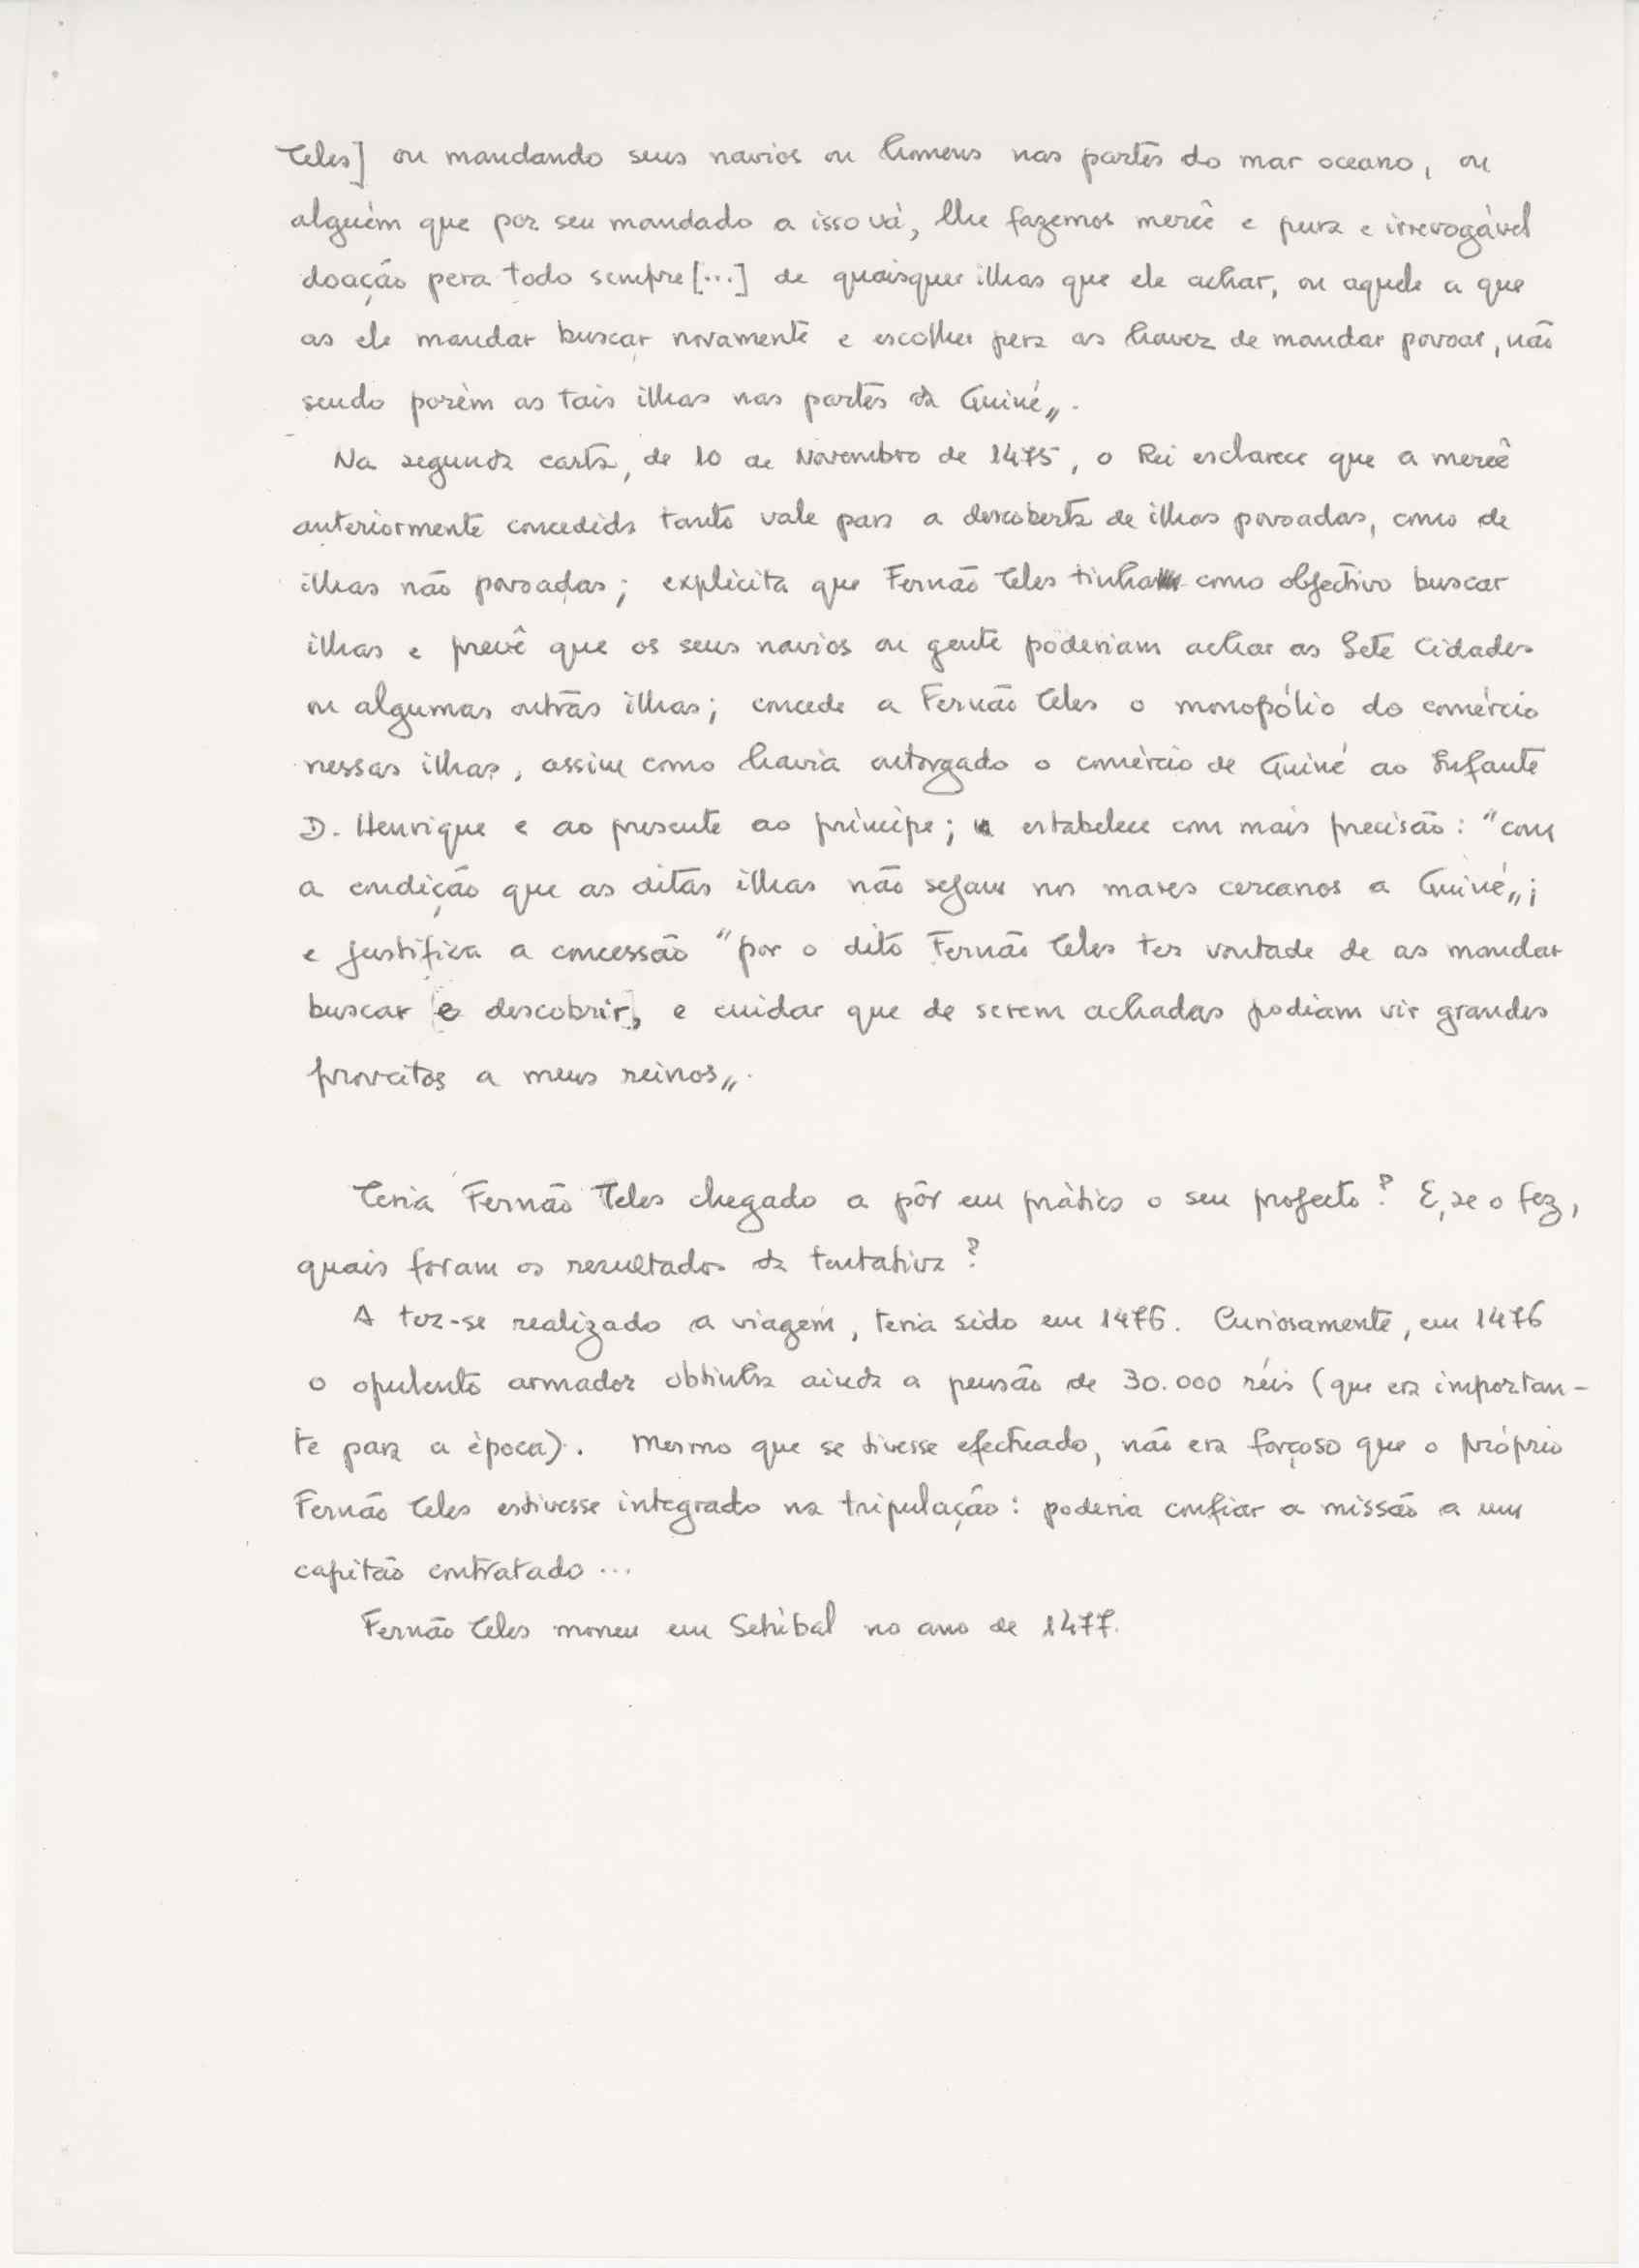 Teles] ou mandando seus navios ou homens nas partes do mar oceano, ou
alguém que por seu mandado a isso vá, lhe fazemos mercê e pura e irrevogável
doação pera todo sempre [...] de quaisquer ilhas que ele achar, ou aquele a que
as ele mandar buscar novamente e escolher pera as haver de mandar povoar, não
sendo porém as tais ilhas nas partes da Guiné".
Na segunda carta, de 10 de Novembro de 1475, o Rei esclarece que a mercê
anteriormente concedida tanto vale para a descoberta de ilhas povoadas, como de
ilhas não povoadas; explicita que Fernão Teles tinha como objectivo buscar
ilhas e prevê que os seus navios ou gente poderiam achar as Sete Cidades
ou algumas outras ilhas; concede a Fernão Teles o monopólio do comércio
nessas ilhas, assim como havia outorgado o comércio de Guiné ao Infante
D. Henrique e ao presente ao príncipe; estabelece com mais precisão: "com
a condição que as ditas ilhas não sejam nos mares cercanos a Guiné";
e justifica a concessão "por o dito Fernão Teles ter vontade de as mandar
buscar [e descobrir], e cuidar que de serem achadas podiam vir grandes
proveitos a meus reinos".
Teria Fernão Teles chegado a pôr em prática o seu projecto? E, se o fez,
quais foram os resultados da tentativa?
A ter-se realizado a viagem, teria sido em 1476. Curiosamente, em 1476
o opulento armador obtinha ainda a pensão de 30.000 réis (que era importan-
te para a época). Mesmo que se tivesse efectuado, não era forçoso que o próprio
Fernão Teles estivesse integrado na tripulação: poderia confiar a missão a um
capitão contratado ...
Fernão Teles morreu em Setúbal no ano de 1477.